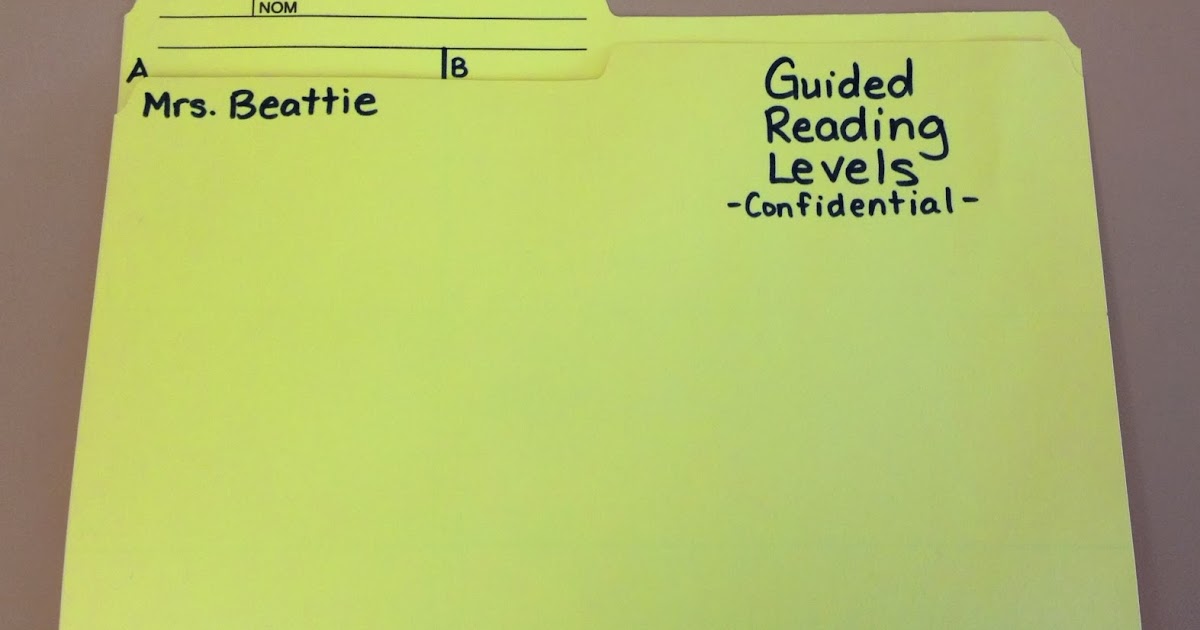 NOM
A B
Mrs. Beattie
Guided
Reading
Levels
-Confidential-